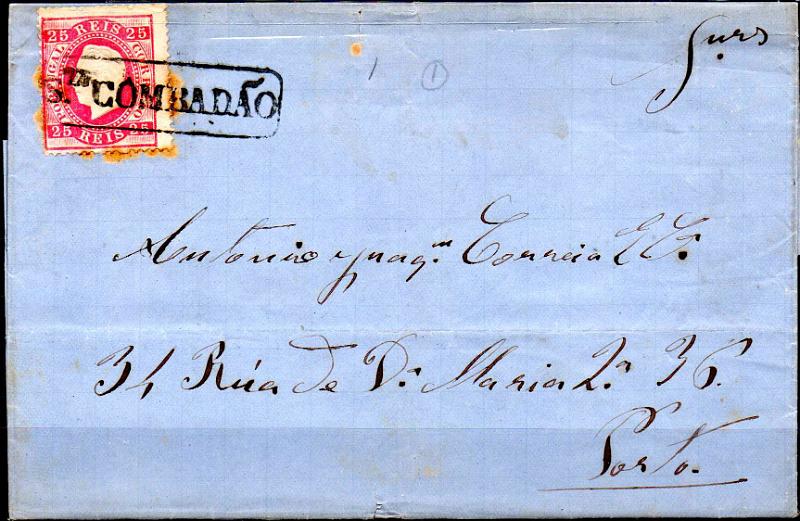 25 REIS 25
CORREIO
PORTUGAL
25 REIS 25
S.TA COMBADÃO
Snrs
1 1
Antonio Joaq.m Correia & C.a
34 Rúa de D.a Maria 2.a 36
Porto.